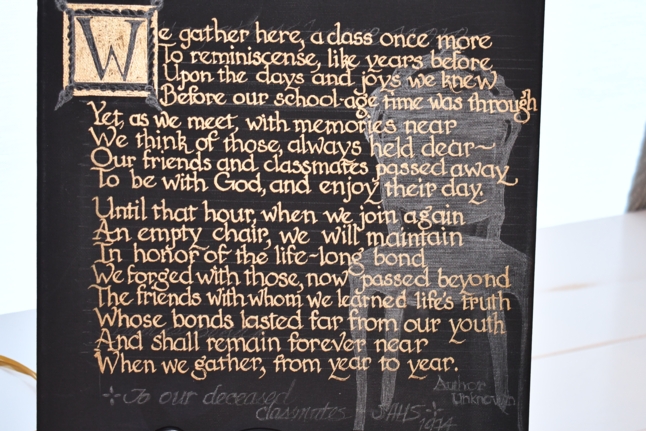 We gather here, a class once more
To reminiscense, like years before,
Upon the days and joys we knew
Before our school-age time was through
Yet, as we meet, with memories near
We think of those, always held dear~
Our friends and classmates passed away
To be with God, and enjoy their day.
Until that hour, when we join again
An empty chair, we will maintain
In honor of the life-long bond
We forged with those, now passed beyond
The friends with whom we learned life's truth
Whose bonds lasted far from our youth
And shall remain forever near
When we gather, from year to year.
Author
Unknown
To our deceased
classmates - SAHS
1974